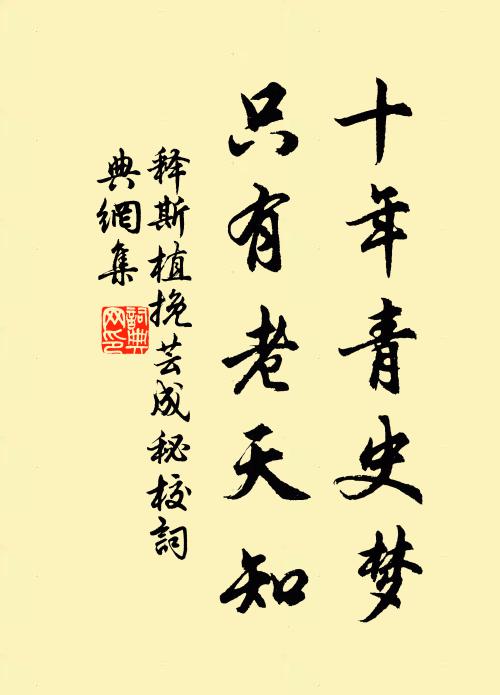 十年青史梦
只有老天知
释斯植挽芸成秘校詞
典網集
詞典
网印